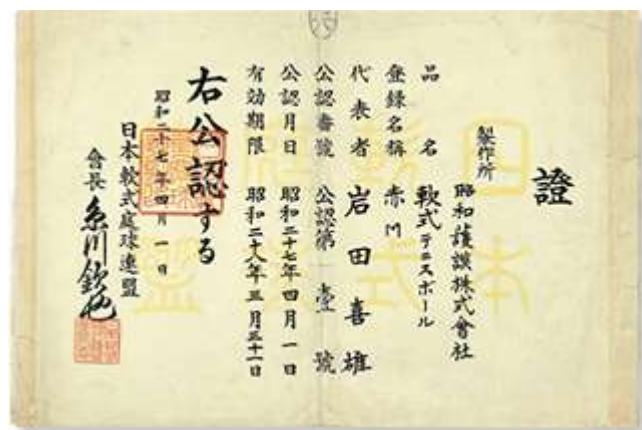 證
製作所
昭和護謨株式會社
品名 軟式テニスボール
登録名稱 赤M
代表者 岩田喜雄
公認番號 公認第一壹號
公認月日 昭和二十七年四月一日
有効期限 昭和二十八年三月三十一日
右公認する
昭和二十七年四月一日
日本軟式庭球連盟
會長
日本
軟式
庭球
連盟